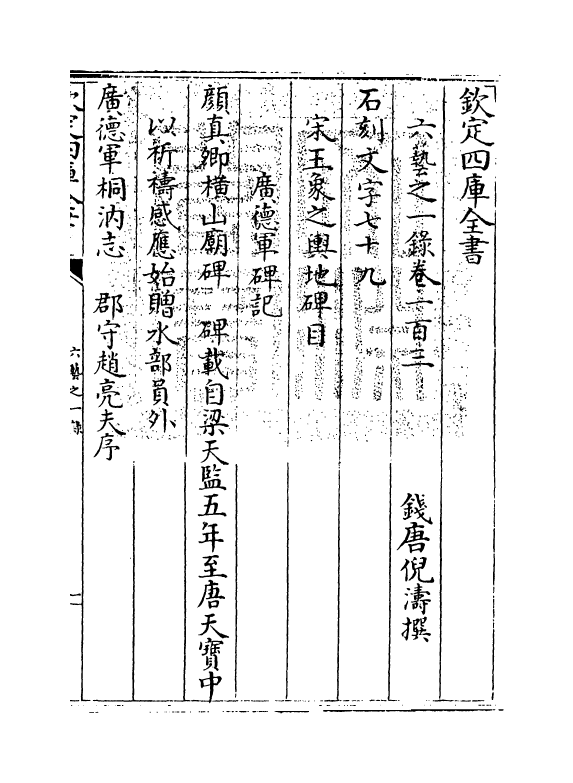 欽定四庫全書
六藝之一錄卷一百三　錢唐倪濤撰
石刻文字七十九
宋王象之輿地碑目
廣德軍碑記
顔真卿橫山廟碑　碑載自梁天監五年至唐天寶中
以祈禱感應始贈水部員外
廣德軍桐汭志　郡守趙亮夫序
欽定四庫全書
六藝之一錄
一